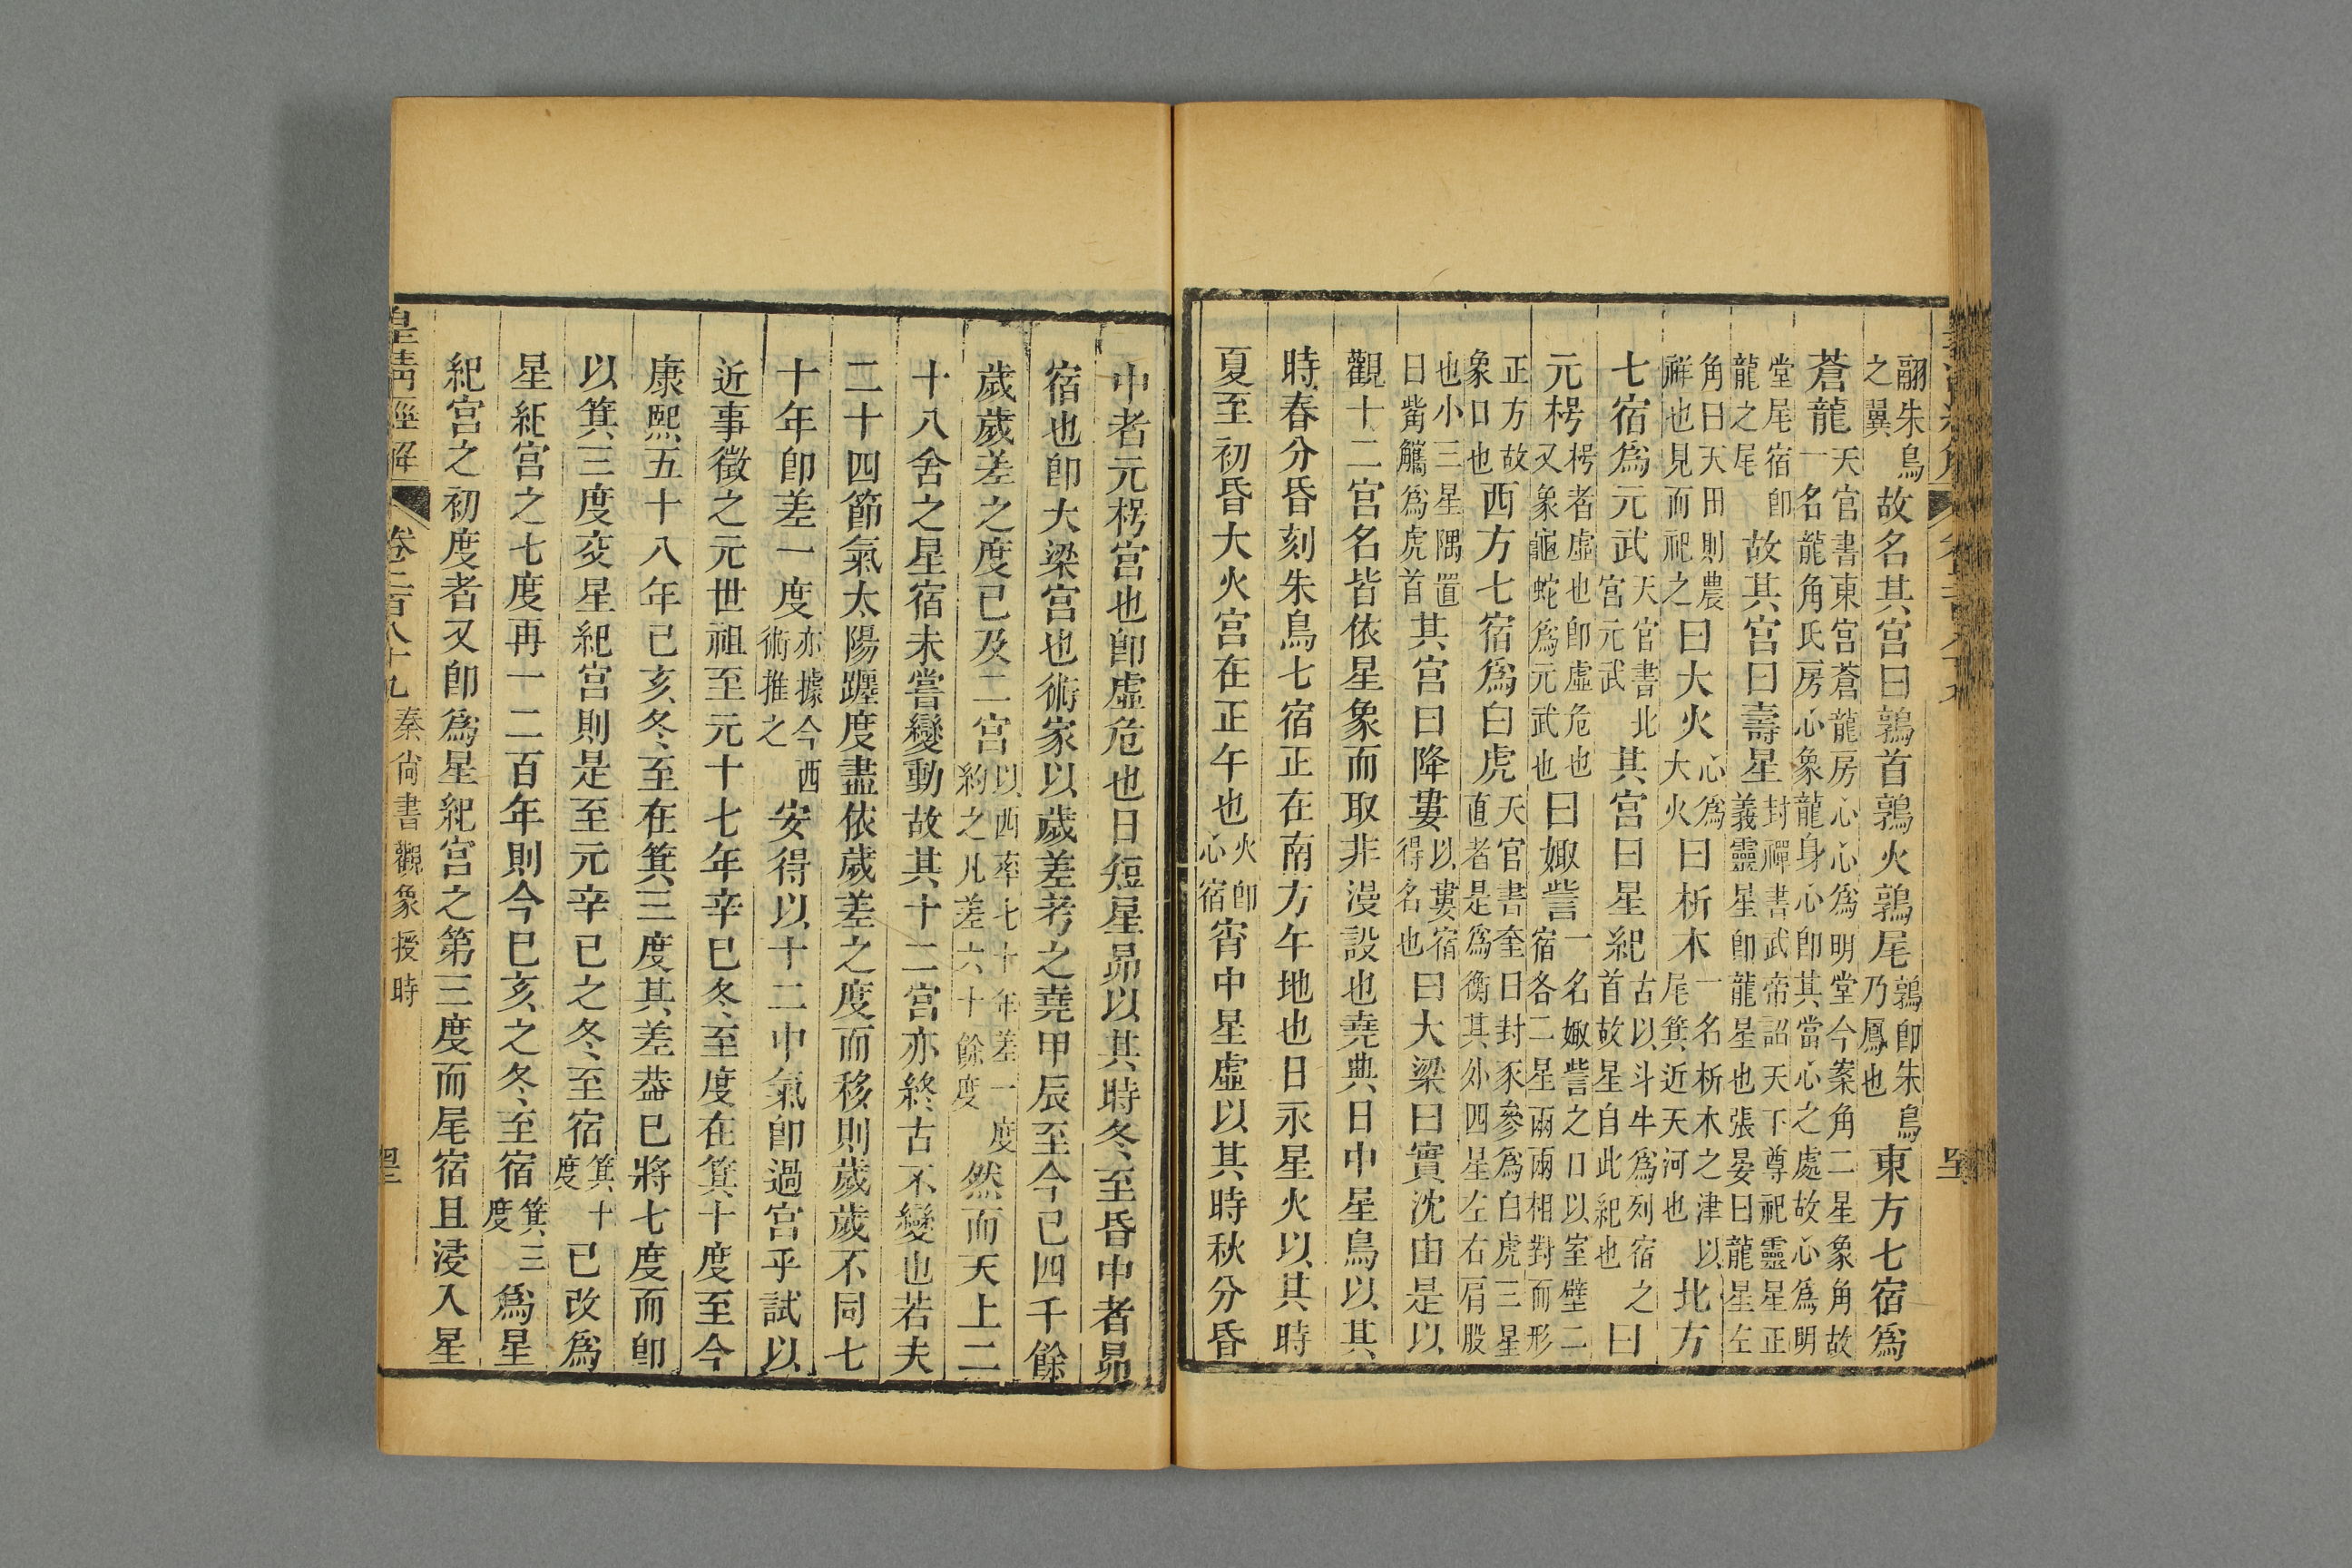 翮朱鳥
之翼故名其宫曰鶉首鶉火鶉尾鶉卽朱鳥
乃鳳也東方七宿爲
蒼龍天官書東宫蒼龍房心心爲明堂今案角二星象角故
一名龍角氐房心象龍身心卽其當心之處故心爲明
堂尾宿卽
龍之尾故其宫曰壽星封禪書武帝詔天下尊祀靈星正
義靈星卽龍星也張晏曰龍星左
角曰天田則農
祥也見而祀之曰大火心爲
大火曰析木一名析木之津以
尾箕近天河也北方
七宿爲元武天官書北
宫元武其宫曰星紀古以斗牛爲列宿之
首故星自此紀也曰
元枵枵者虛也卽虛危也
又象龜蛇爲元武也曰娵訾一名娵訾之口以室壁二
宿各二星兩兩相對而形
正方故
象口也西方七宿爲白虎天官書奎曰封豕參爲白虎三星
直者是爲衡其外四星左右肩股
也小三星隅置
曰觜觿爲虎首其宫曰降婁以婁宿
得名也曰大梁曰實沈由是以
觀十二宫名皆依星象而取非漫設也堯典日中星鳥以其
時春分昏刻朱鳥七宿正在南方午地也日永星火以其時
夏至初昏大火宫在正午也火卽
心宿宵中星虛以其時秋分昏
中者元枵宫也卽虛危也日短星昴以其時冬至昏中者昴
宿也卽大梁宫也術家以歲差考之堯甲辰至今已四千餘
歲歲差之度已及二宫以西率七十年差一度
約之凡差六十餘度然而天上二
十八舍之星宿未嘗變動故其十二宫亦終古不變也若夫
二十四節氣太陽躔度盡依歲差之度而移則歲歲不同七
十年卽差一度亦據今西
術推之安得以十二中氣卽過宫乎試以
近事徵之元世祖至元十七年辛巳冬至度在箕十度至今
康熙五十八年己亥冬至在箕三度其差葢已將七度而卽
以箕三度交星紀宫則是至元辛巳之冬至宿箕十
度已改爲
星紀宫之七度再一二百年則今己亥之冬至宿箕三
度爲星
紀宫之初度者又卽爲星紀宫之第三度而尾宿且浸入星
皇淸經解 卷二百八十九 秦尙書觀象授時